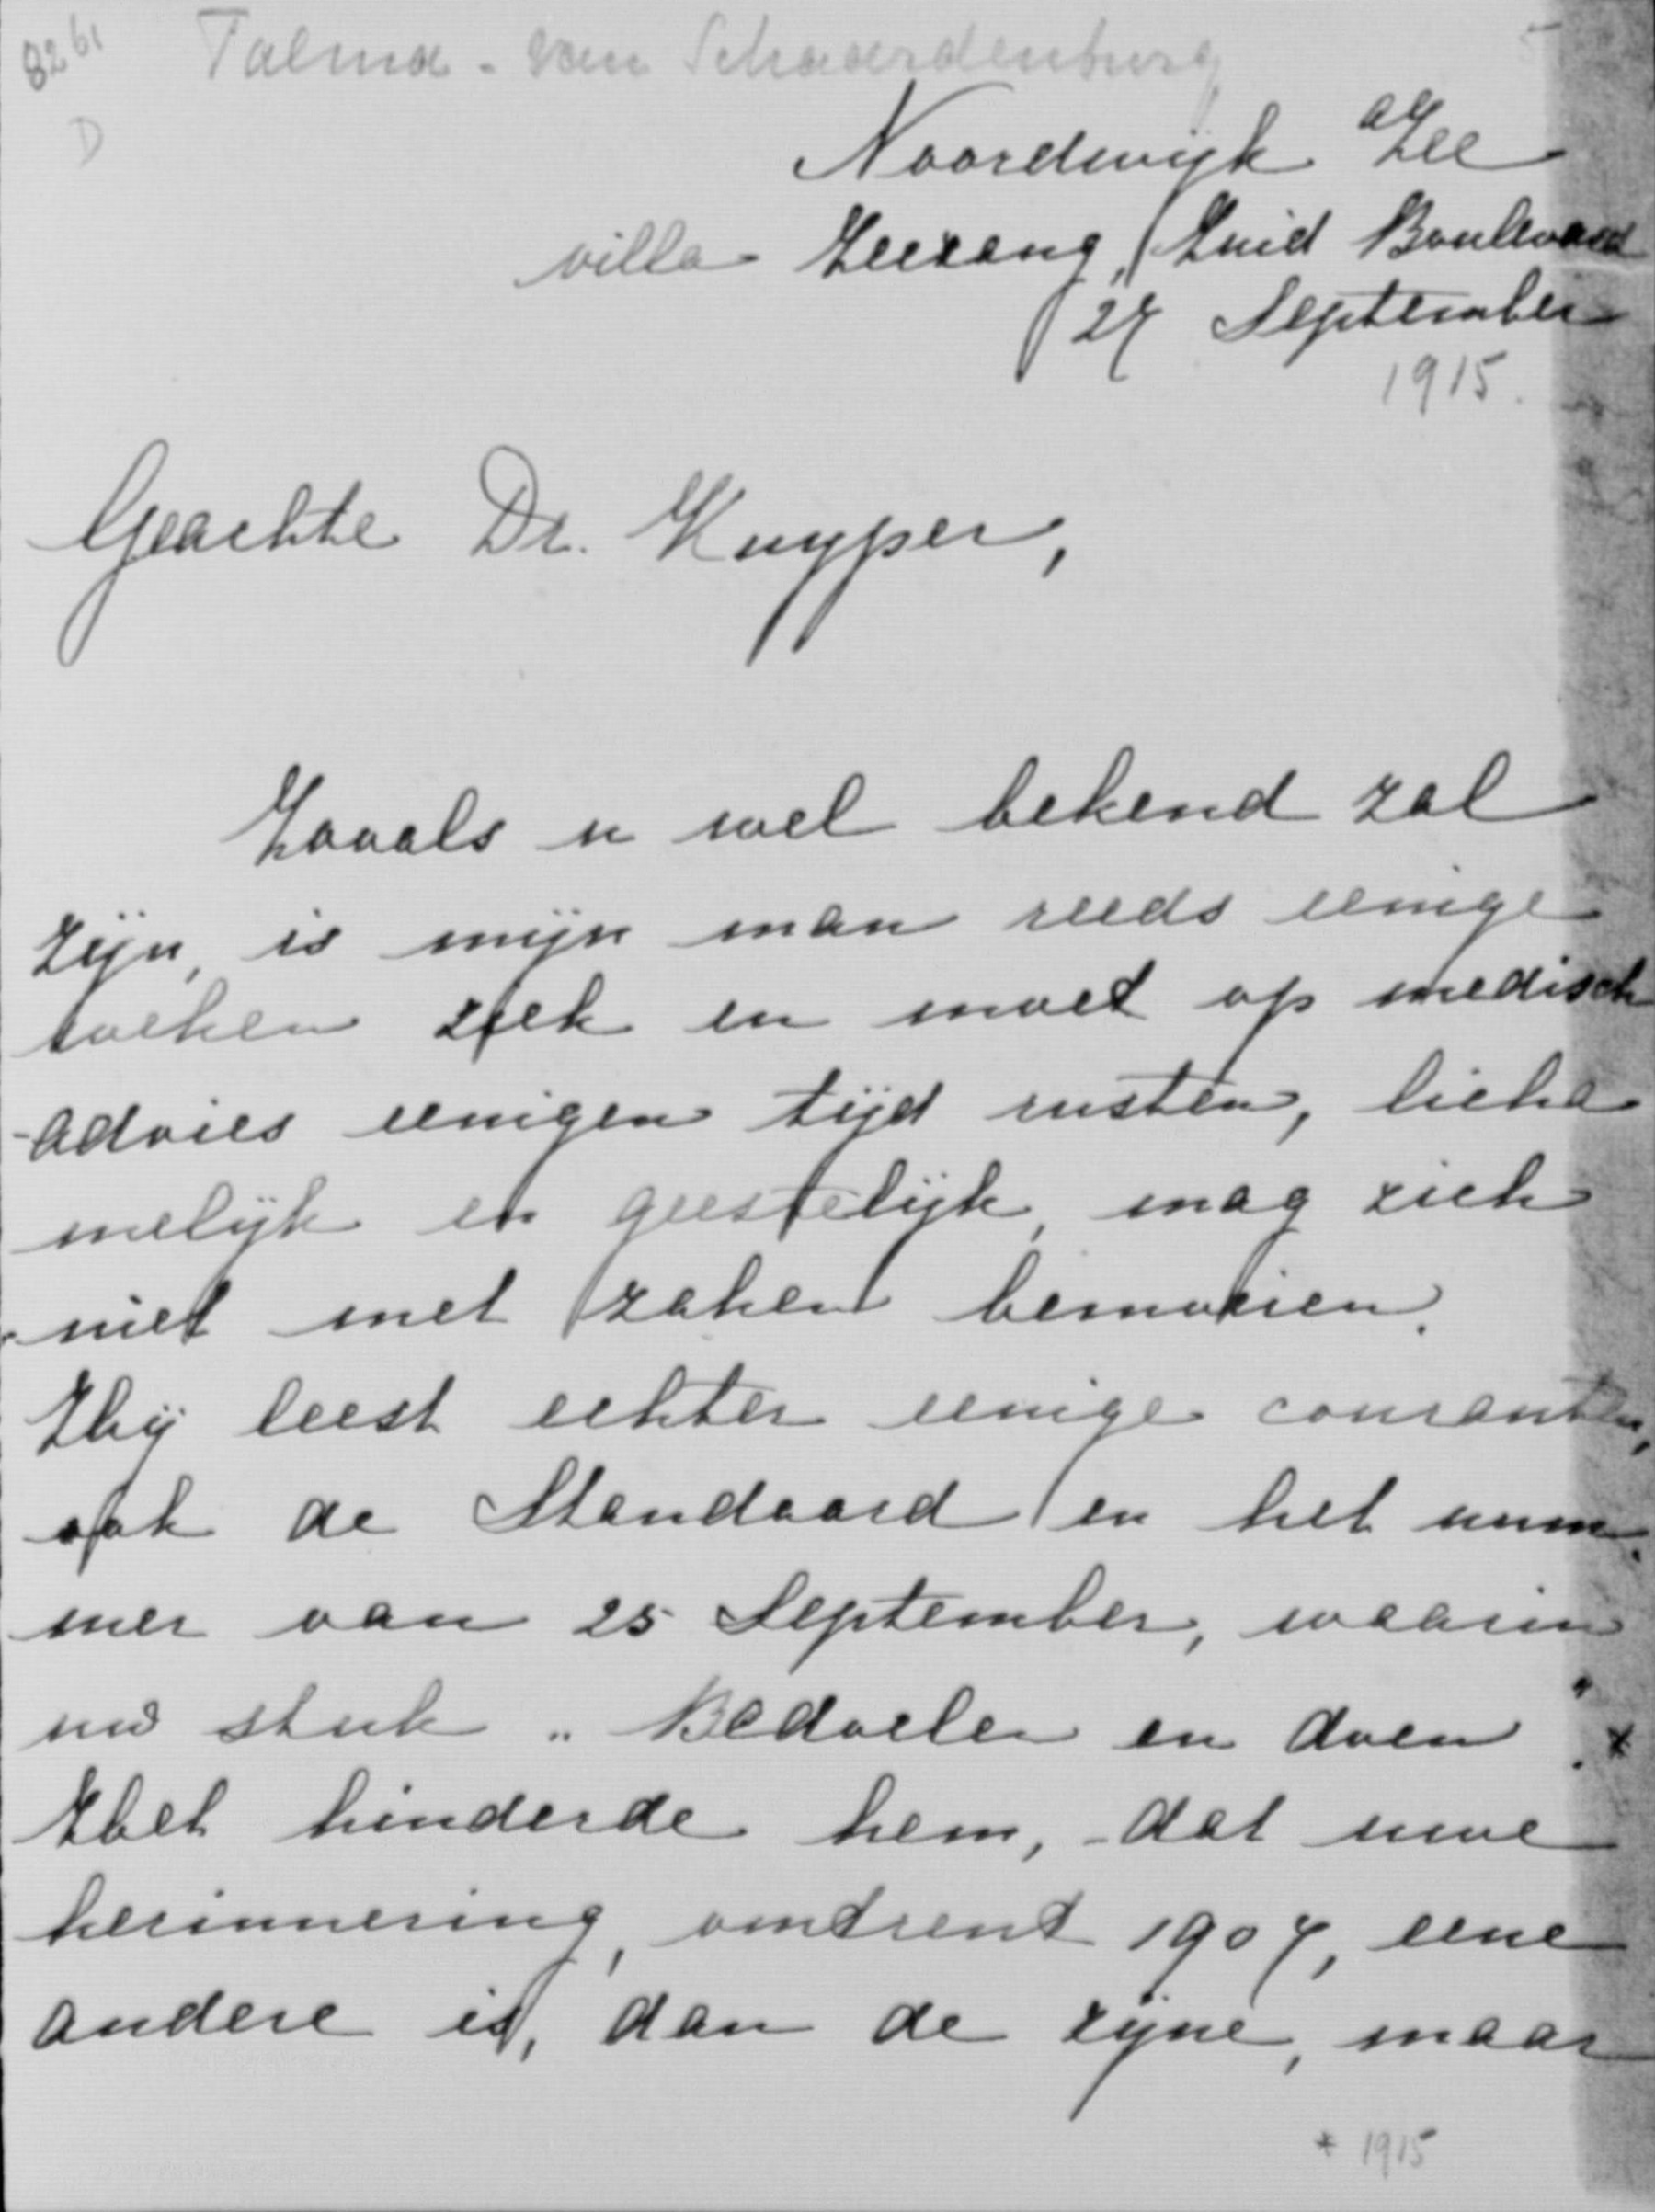 8261 Talma - van Schaardenburg
D
Noordwijk a/Zee
villa Zeezang, Zuid Boulevard
27 September
1915.
Geachte Dr. Kuyper,
Zooals u wel bekend zal
zijn, is mijn man reeds eenige
weken ziek en moet op medisch
advies eenigen tijd rusten, licha
melijk en geestelijk, mag zich
niet met zaken bemoeien.
Hij leest echter eenige couranten,
ook de Standaard en het num
mer van 25 September, waarin
uw stuk „Bedoelen en doen". *
Het hinderde hem, dat uwe
herinnering, omtrent 1907, eene
andere is, dan de zijne, maar
* 1915